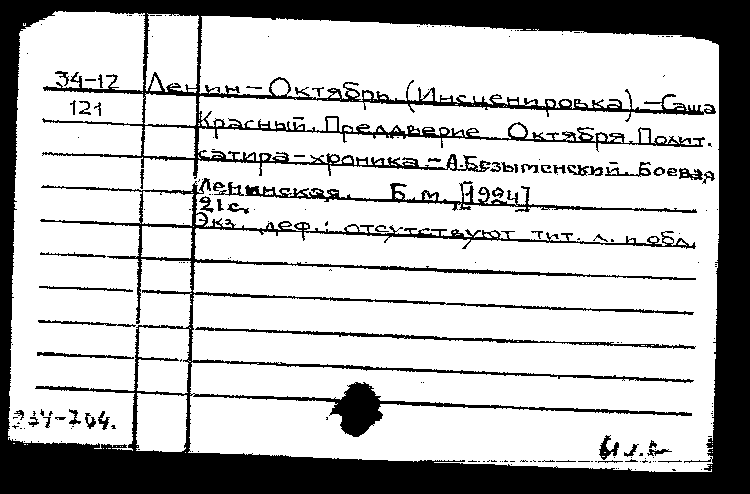 34-12 Ленин-Октябрь (Инсценировка).-Саша
121 Красный. Преддверие Октября. Полит.
сатира-хроника.-А.Безыменский. Боевая
Ленинская. Б.м., [1924]
21с.
Экз. деф.: отсутствуют тит. л. и обл.
234-704.